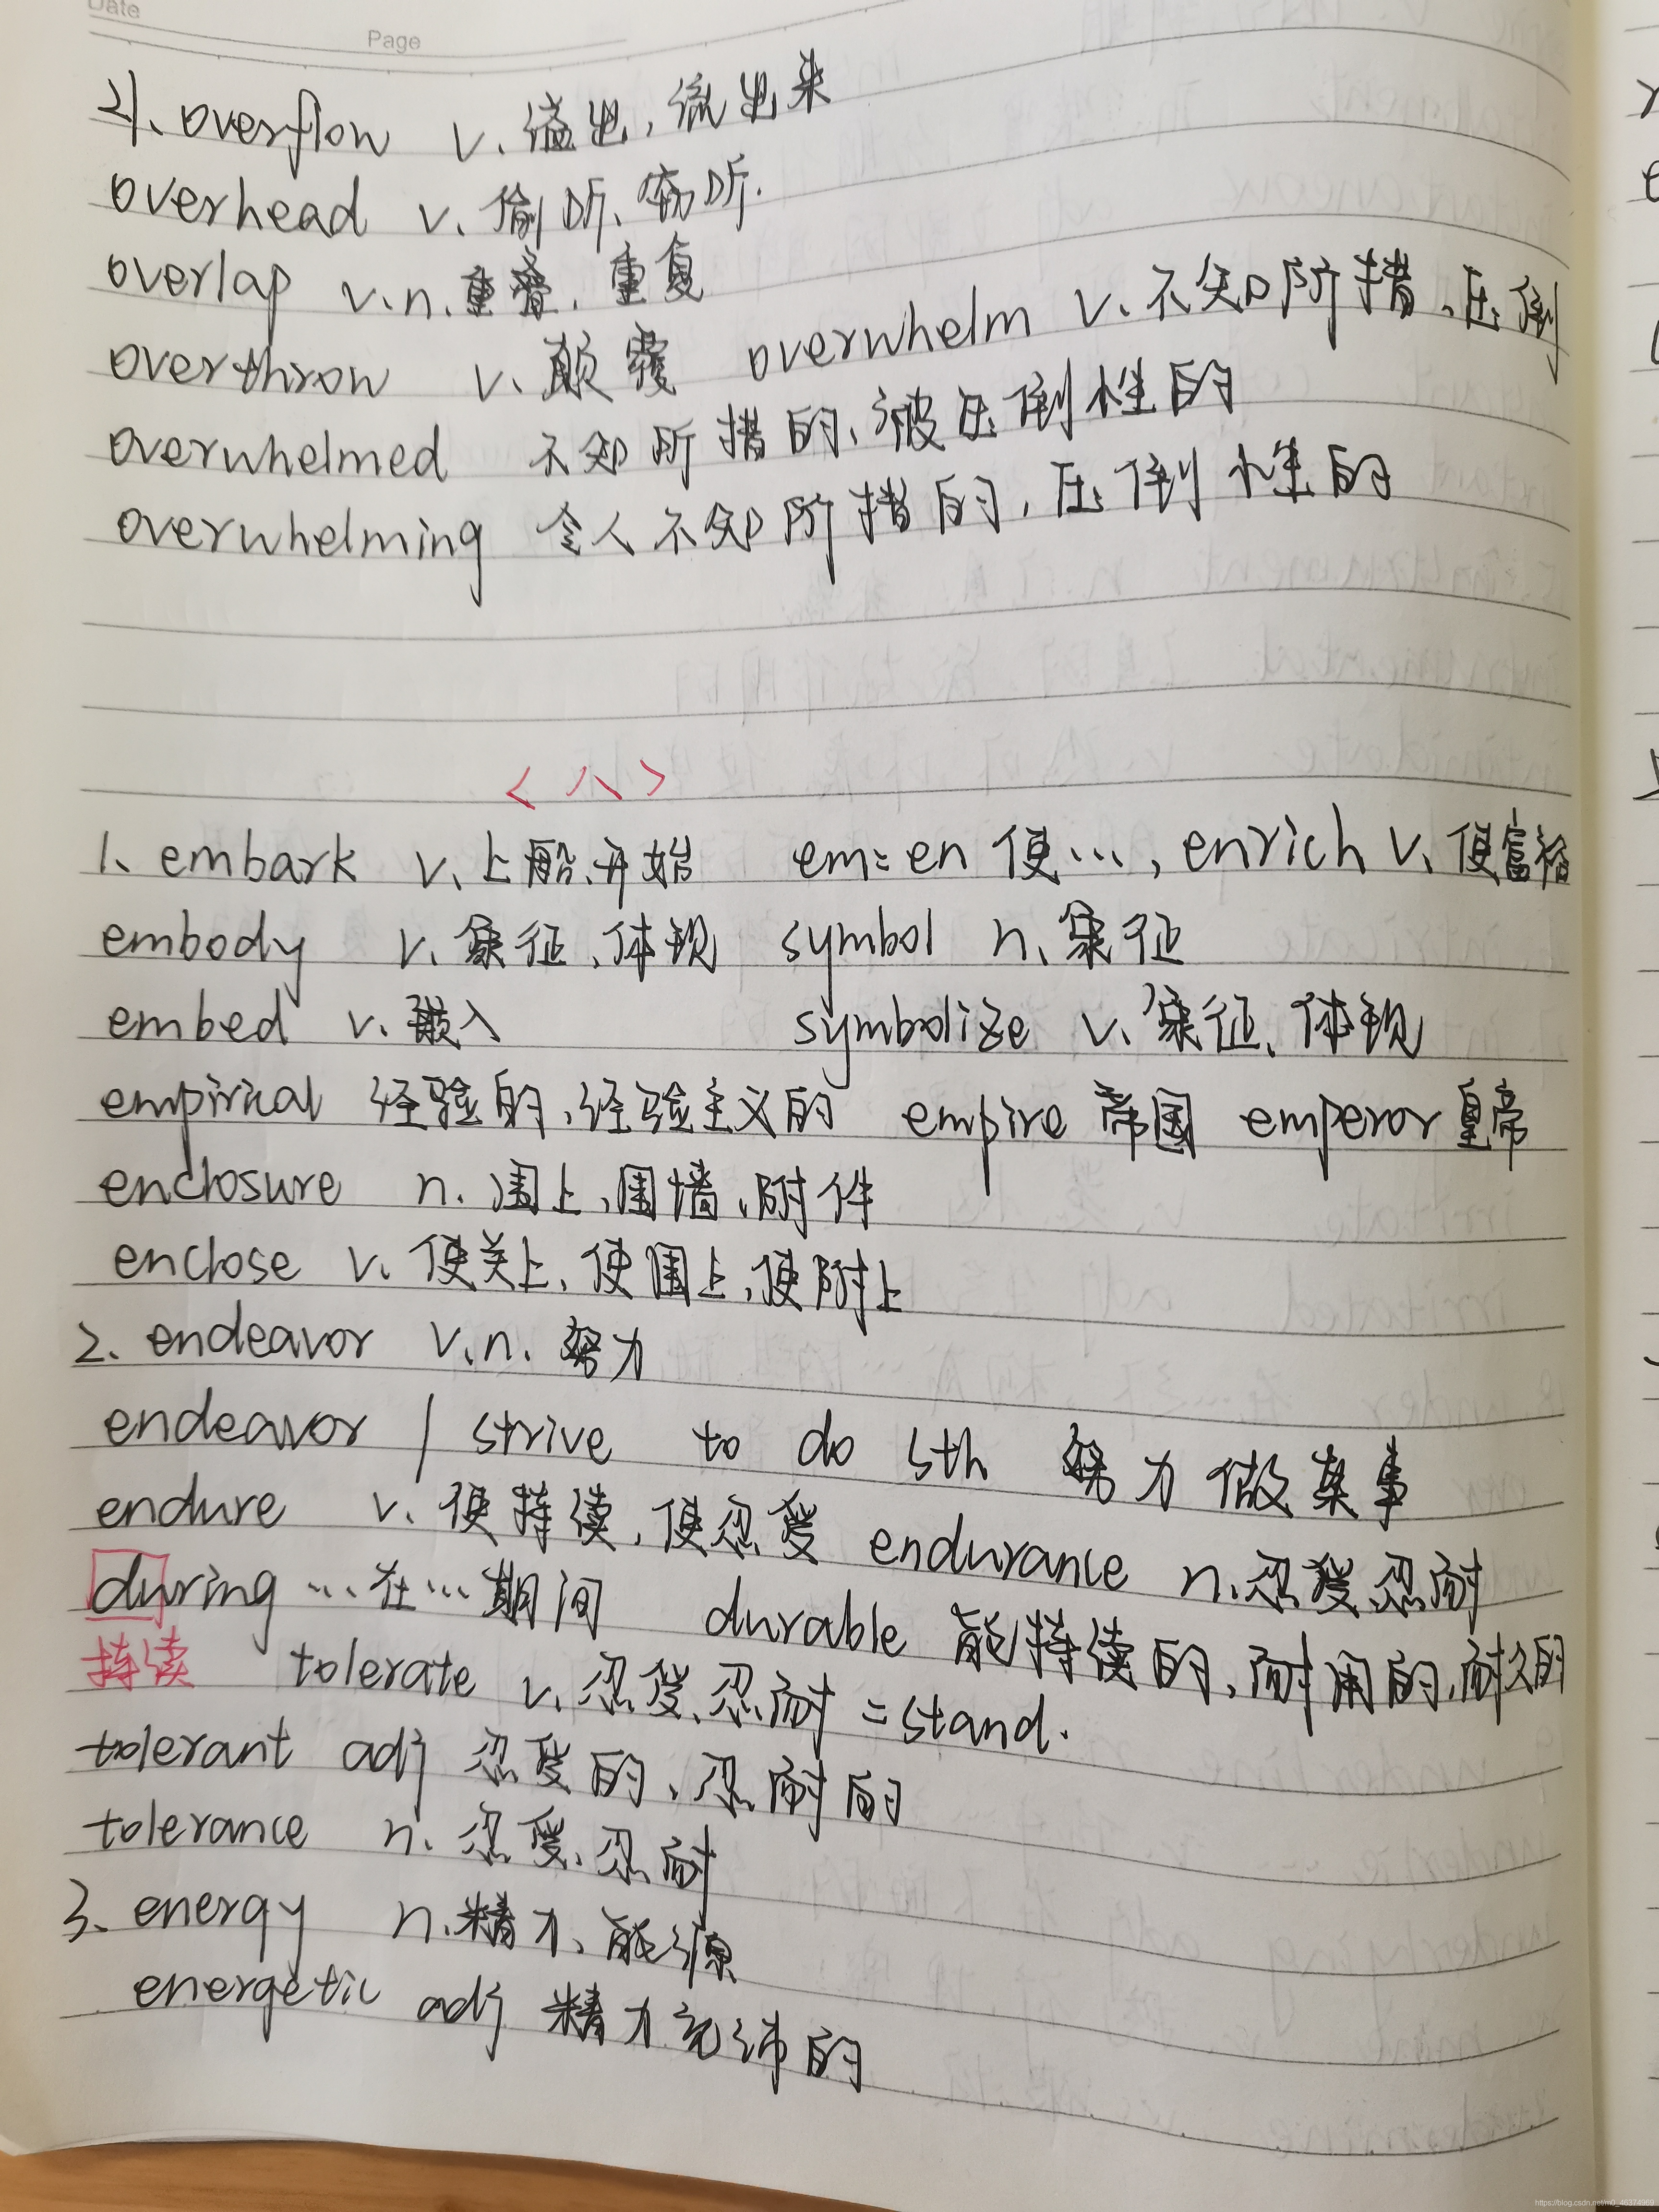 Date
Page
21、overflow v、溢出，流出来
overhead v、偷听、窃听.
overlap v.n.重叠，重复
overthrow v、颠覆 overwhelm v、不知所措、压倒
overwhelmed 不知所措的、被压倒性的
overwhelming 令人不知所措的，压倒性的
<八>
1、embark v、上船、开始 em=en 使…，enrich v、使富裕
embody v、象征、体现 symbol n、象征
embed v、嵌入 symbolize v、象征、体现
empirical 经验的、经验主义的 empire 帝国 emperor 皇帝
enclosure n. 围上、围墙、附件
enclose v、使关上、使围上，使附上
2、endeavor v.n. 努力
endeavor / strive to do sth 努力做某事
endure v、使持续，使忍受 endurance n.忍受、忍耐
during … 在…期间 durable 能持续的，耐用的，耐久的
持续 tolerate v、忍受、忍耐 = stand.
tolerant adj 忍受的、忍耐的
tolerance n. 忍受、忍耐
3、energy n.精力、能源
energetic adj 精力充沛的
https://blog.csdn.net/m0_46374969